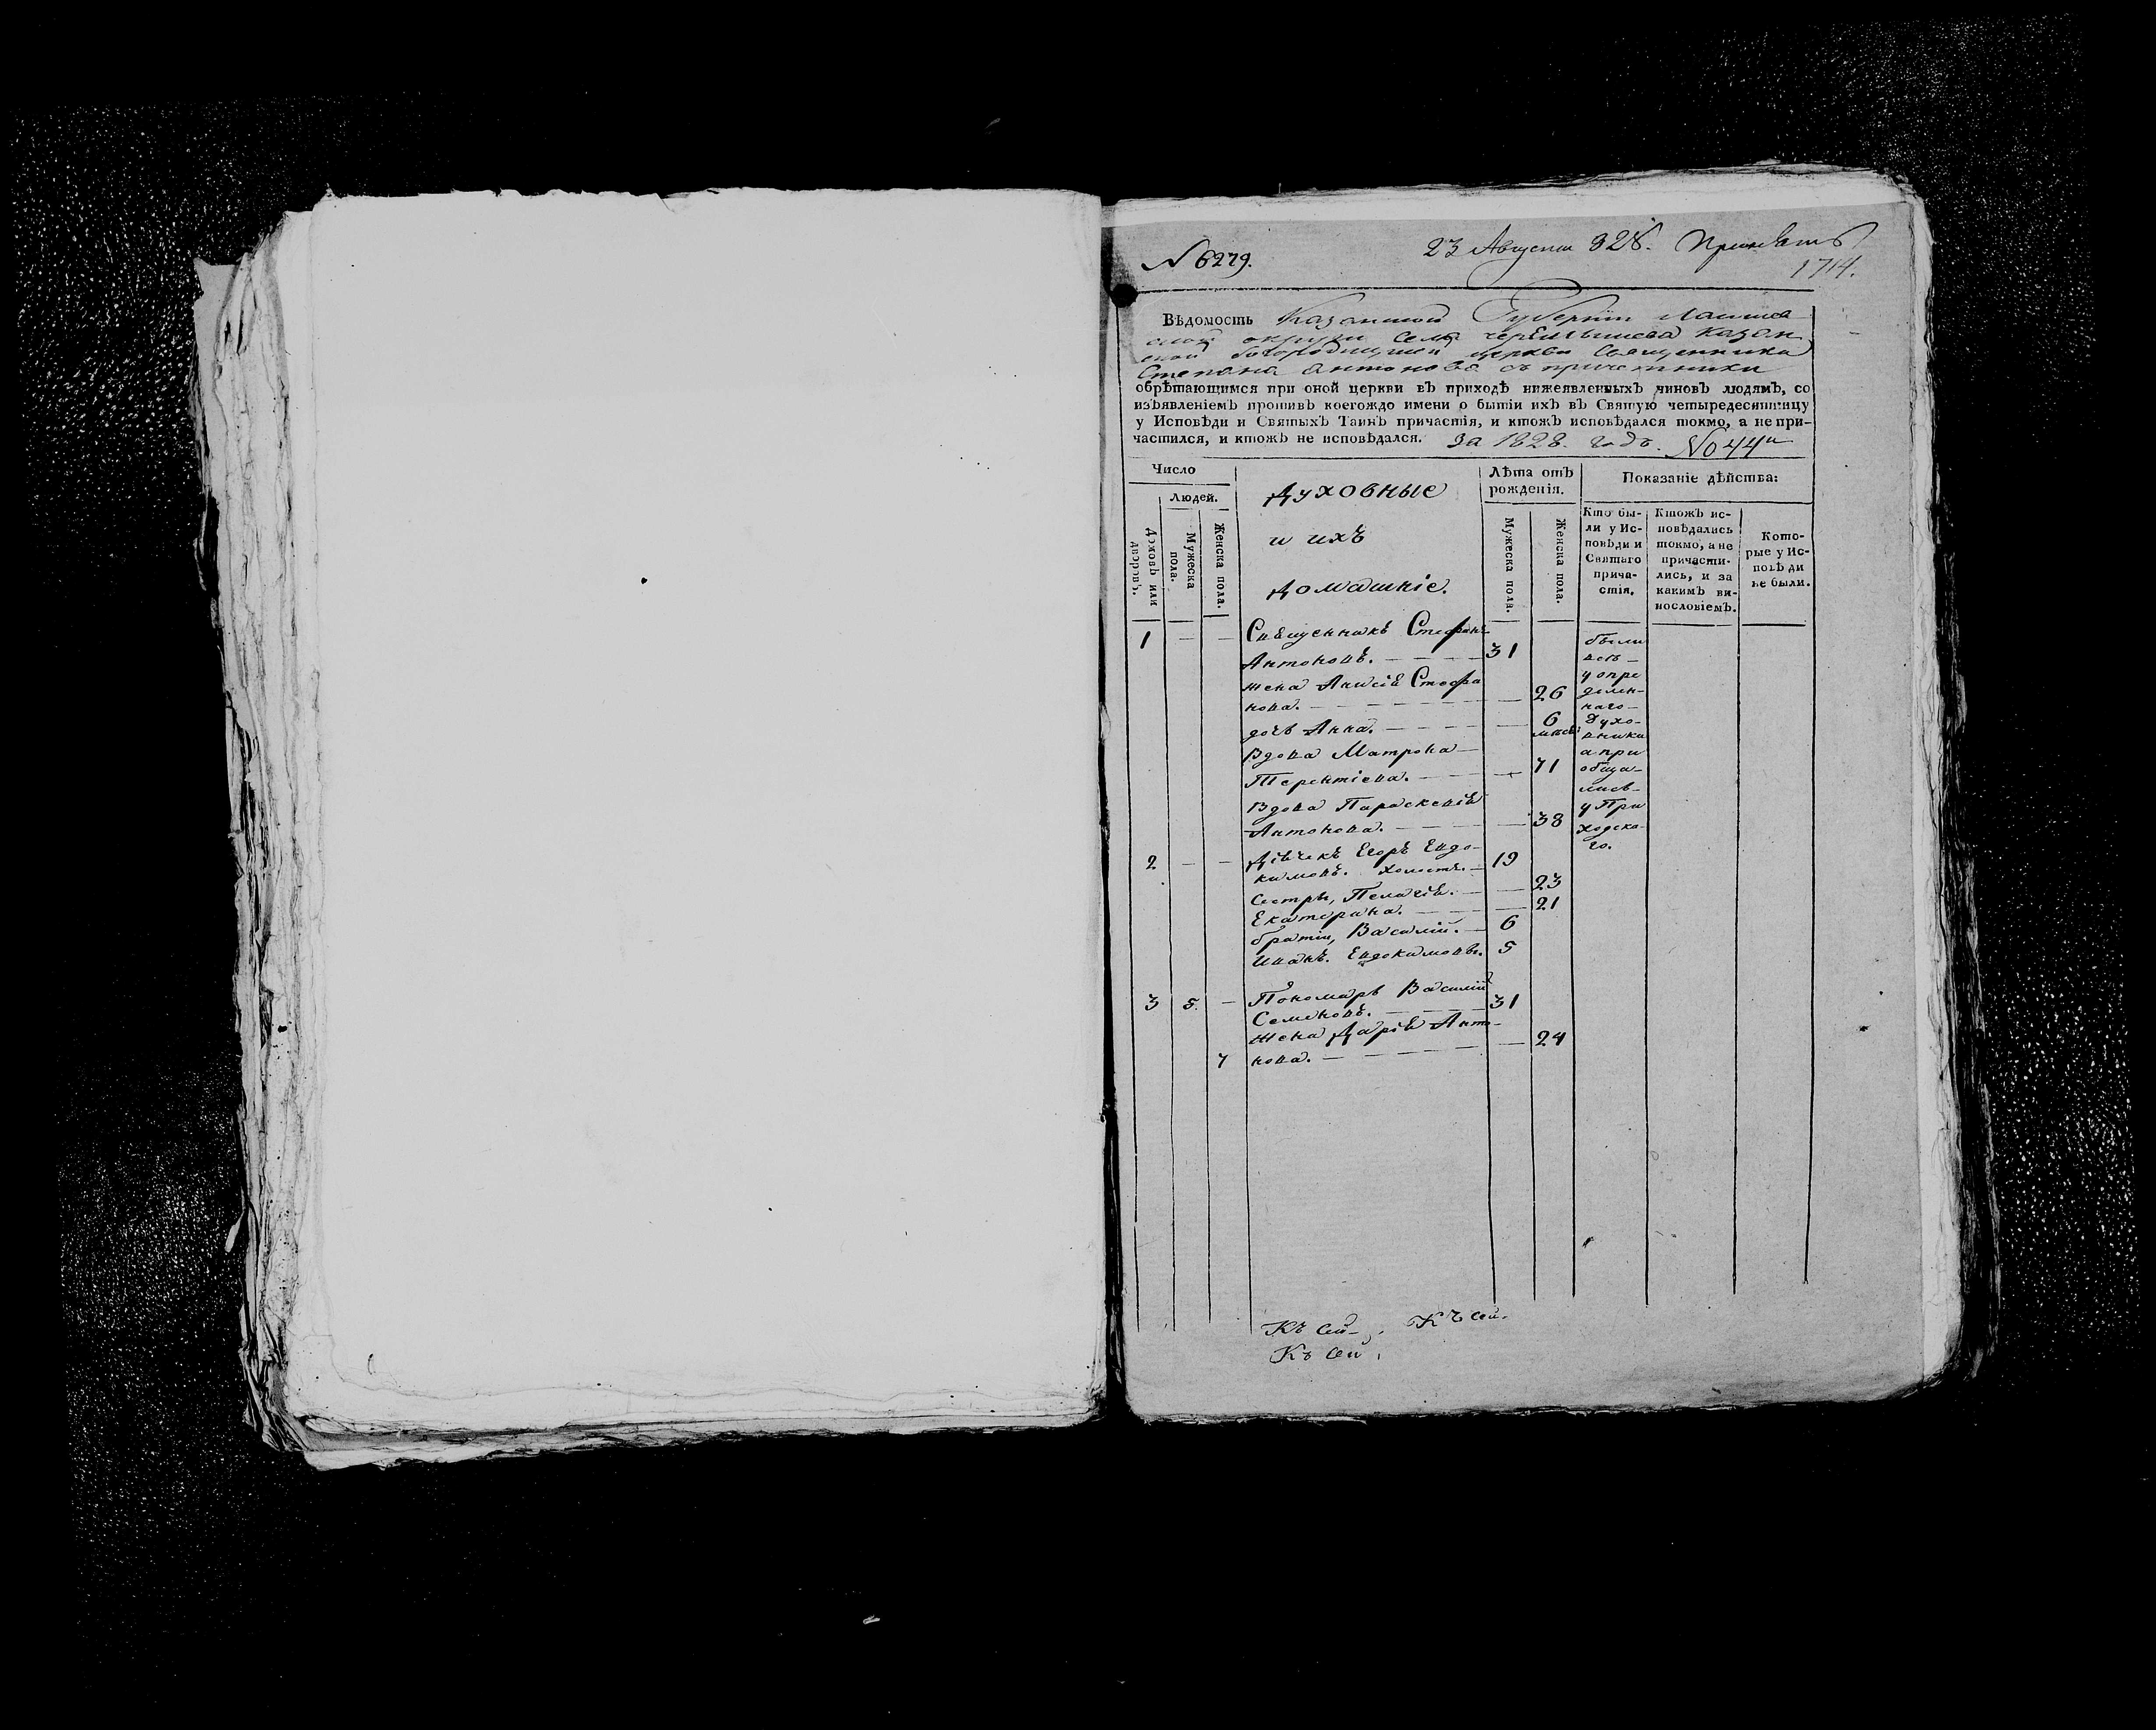 № 6279.
23 Августа 828. Принять
1714.
Вѣдомость Казанской Губернїи Лаишев
ской округи села Черемышева Казан
ской богородицкой церкви Священника
Степана Антонова съ причетники
обрѣтающимся при оной церкви въ приходѣ нижеявленныхъ чиновъ людямъ, со
изъявленіемъ противъ коегождо имени о бытіи ихъ въ Святую четыредесятницу
у Исповѣди и Святыхъ Таинъ причастія, и ктожъ исповѣдался токмо, а не при-
частился, и ктожъ не исповѣдался. За 1828. годъ. №44й
Число
Людей.
Домовъ или дворовъ.
Мужеска пола.
Женска пола.
Духовные
и ихъ
домашніе.
Лѣта отъ
рожденія.
Мужеска пола.
Женска пола.
Показаніе дѣйства:
Кто бы-
ли у Ис-
повѣди и
Святаго
прича-
стія.
Ктожъ ис-
повѣдались
токмо, а не
причасти-
лись, и за
какимъ ви-
нословіемъ.
Кото-
рые у Ис-
повѣди
не были.
1 — — Священникъ Стефанъ
Антоновъ. — — — 31
жена Анисія Стефа
нова. — — — — 26
дочь Анна. — — — 6
мѣсѣ:
Вдова Матрона —
Терентіева. — — — 71
Вдова Параскевія
Антонова. — — — 38
были
всѣ —
у опре
делен-
наго —
Духо-
вника
а при
обща-
лись —
у При
ходска-
го.
2 — — Дьячекъ Егоръ Евдо-
кимовъ. холостъ. — 19
Сестры, Пелагія. — — 23
Екатерина. — — — 21
братья, Василій. — 6
Иванъ. Евдокимовы. 5
3 5. — Пономарь Василій
Семеновъ. — — — 31
жена Дарія Анто-
7 нова. — — — — 24
Къ сей
Къ сей.
Къ сей